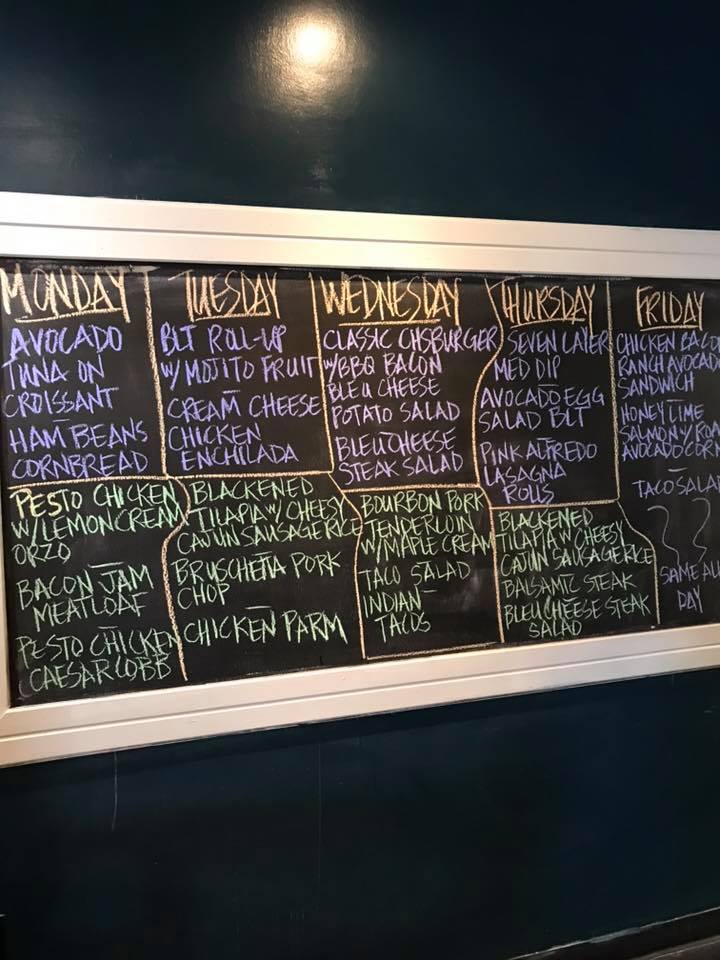 MONDAY
AVOCADO
TUNA ON
CROISSANT
HAM BEANS
CORNBREAD
PESTO CHICKEN
W/LEMON CREAM
ORZO
BACON JAM
MEATLOAF
PESTO CHICKEN
CAESAR COBB
TUESDAY
BLT ROLL-UP
W/ MOJITO FRUIT
CREAM CHEESE
CHICKEN
ENCHILADA
BLACKENED
TILAPIA W/ CHEESY
CAJUN SAUSAGE RICE
BRUSCHETTA PORK
CHOP
CHICKEN PARM
WEDNESDAY
CLASSIC CHSBURGER
W/BBQ BACON
BLEU CHEESE
POTATO SALAD
BLEU CHEESE
STEAK SALAD
BOURBON PORK
TENDERLOIN
W/MAPLE CREAM
TACO SALAD
INDIAN
TACOS
THURSDAY
SEVEN LAYER
MED DIP
AVOCADO EGG
SALAD BLT
PINK ALFREDO
LASAGNA
ROLLS
BLACKENED
TILAPIA W/ CHEESY
CAJUN SAUSAGE RICE
BALSAMIC STEAK
BLEU CHEESE STEAK
SALAD
FRIDAY
CHICKEN BACO
RANCH AVOCAD
SANDWICH
HONEY LIME
SALMON W/ ROA
AVOCADO CORN
TACO SALA
SAME ALL
DAY